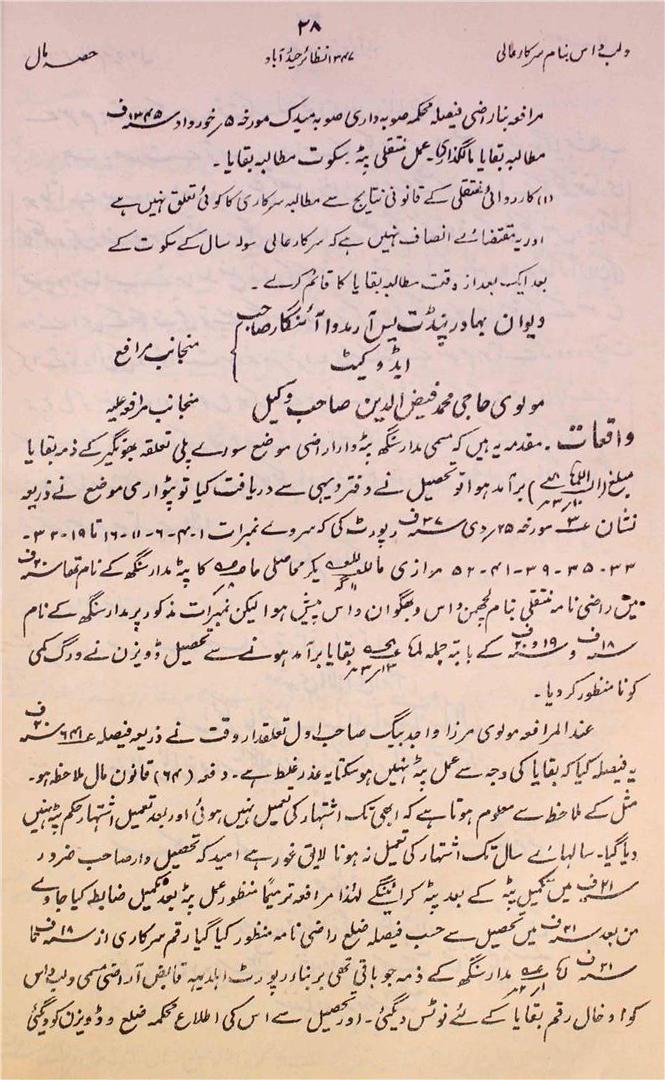 ۲۸
ولبداس بنام سرکار عالی ۱۳۴۷ نظائر حیدرآباد حصہ مال
مرافعہ بنا راضی فیصلہ محکمہ صوبہ داری صوبہ میدک مورخہ ۵ خورداد ۱۳۴۵ ف
مطالبہ بقایا مالگذاری۔ عمل منتقلی پٹہ۔ سکوت مطالبہ بقایا۔
(۱) کارروائی منتقلی کے قانونی نتایج سے مطالبہ سرکاری کا کوئی تعلق نہیں ہے
اور یہ مقتضائے انصاف نہیں ہے کہ سرکار عالی سولہ سال کے سکوت کے
بعد ایک بعد از وقت مطالبہ بقایا کا قائم کرے۔
دیوان بہادر پنڈت یس آرمدوا آئنگار صاحب
ایڈوکیٹ منجانب مرافع
مولوی حاجی محمد فیض الدین صاحب وکیل منجانب مرافعہ علیہ
واقعات۔ مقدمہ یہ ہیں کہ مسمی مدار سنگھ پٹہ دار اراضی موضع سورے پلی تعلقہ بھونگیر کے ذمہ بقایا
مبلغ برآمد ہوا تو تحصیل نے دفتر دیہی سے دریافت کیا تو پٹواری موضع نے ذریعہ
نشان مورخہ ۲۵ دی ۳۷ ف رپورٹ کی کہ سروے نمبرات ۱-۴-۶-۱۱-۱۶ تا ۱۹-۳۲-
۳۳-۳۵-۳۹-۴۱-۵۲ مرازی یکر محاصلی کا پٹہ مدار سنگھ کے نام تھا ۲۰ ف
میں راضی نامہ منتقلی بنام لچھمن داس و بھگوان داس پیش ہوا لیکن نمبرات مذکور پر مدار سنگھ کے نام
۱۸ ف و ۱۹ و ۲۰ ف کے بابتہ جملہ بقایا برآمد ہونے سے تحصیل ڈویزن نے ورگ کمی
کو نامنظور کر دیا۔
عند المرافعہ مولوی مرزا واجد بیگ صاحب اول تعلقدار وقت نے ذریعہ فیصلہ ۲۰ ف
یہ فیصلہ کیا کہ بقایا کی وجہ سے عمل پٹہ نہیں ہو سکتا یہ عذر غلط ہے۔ دفعہ (۶۴) قانون مال ملاحظہ ہو۔
مثل کے ملاحظہ سے معلوم ہوتا ہے کہ ابھی تک اشتہار کی تعمیل نہیں ہوئی اور بعد تعمیل اشتہار حکم پٹہ نہیں
دیا گیا۔ سالہائے سال تک اشتہار کی تعمیل نہ ہونا لایق غور ہے امید کہ تحصیل دار صاحب ضرور
۲۱ ف میں تکمیل پٹہ کے بعد پٹہ کرائینگے لہذا مرافعہ ترمیماً منظور عمل پٹہ بعد تکمیل ضابطہ کیا جاوے
من بعد ۲۱ ف میں تحصیل سے حسب فیصلہ ضلع راضی نامہ منظور کیا گیا رقم سرکاری از ۱۸ ف تا
۲۱ ف مدار سنگھ کے ذمہ جو باقی تھی بر بناء رپورٹ اہلدیہہ قابض آراضی مسمی ولبداس
کو ادخال رقم بقایا کے لئے نوٹس دیگئی۔ اور تحصیل سے اس کی اطلاع محکمہ ضلع و ڈویزن کو دیگئی